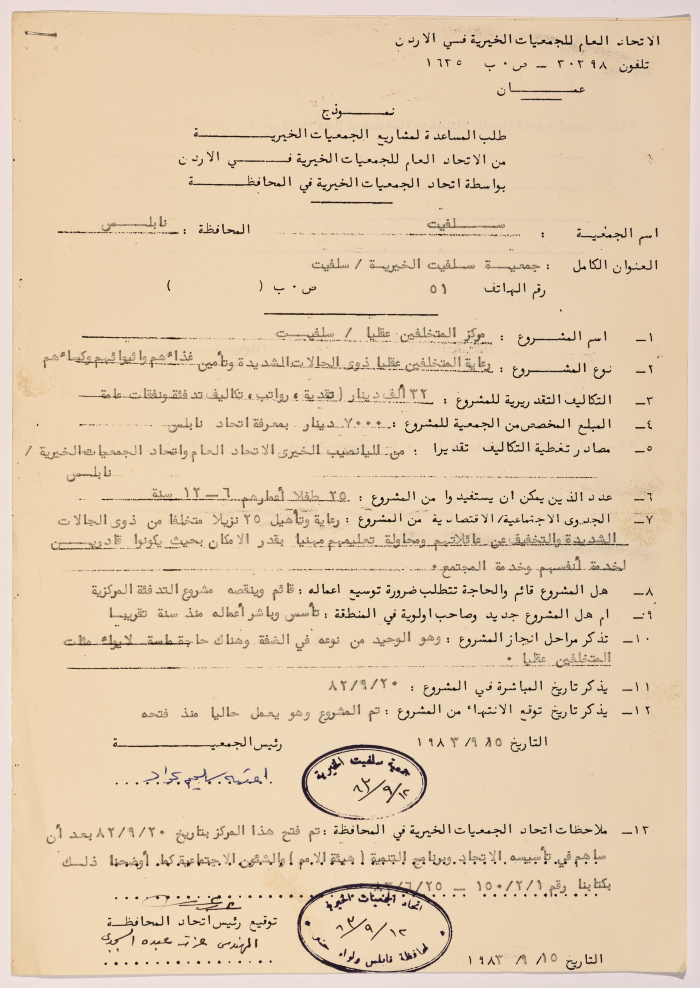 الاتحاد العام للجمعيات الخيرية في الاردن
تلفون ٣٠٣٩٨ – ص٠ب ١٦٣٥
عمان
نموذج
طلب المساعدة لمشاريع الجمعيات الخيرية
من الاتحاد العام للجمعيات الخيرية في الاردن
بواسطة اتحاد الجمعيات الخيرية في المحافظة
اسم الجمعية : سلفيت المحافظة : نابلس
العنوان الكامل : جمعية سلفيت الخيرية / سلفيت
رقم الهاتف ٥١ ص٠ب ( )
١– اسم المشروع : مركز المتخلفين عقليا / سلفيت
٢– نوع المشروع : رعاية المتخلفين عقليا ذوى الحالات الشديدة وتأمين غذائهم وايوائهم وكسائهم
٣– التكاليف التقديرية للمشروع : ٣٢ ألف دينار ( نقدية ، رواتب ، تكاليف تدفئة ونفقات عامة
٤– المبلغ المخصص من الجمعية للمشروع : ٧٠٠٠ دينار بمعرفة اتحاد نابلس
٥– مصادر تغطية التكاليف تقديرا : من اليانصيب الخيرى الاتحاد العام واتحاد الجمعيات الخيرية /
نابلس
٦– عدد الذين يمكن ان يستفيدوا من المشروع : ٢٥ طفلا أعمارهم ٦–١٢ سنة
٧– الجدوى الاجتماعية/الاقتصادية من المشروع : رعاية وتأهيل ٢٥ نزيلا متخلفا من ذوى الحالات
الشديدة والتخفيف عن عائلاتهم ومحاولة تعليمهم مهنيا بقدر الامكان بحيث يكونوا قادرين
لخدمة أنفسهم وخدمة المجتمع٠
٨– هل المشروع قائم والحاجة تتطلب ضرورة توسيع اعماله : قائم وينقصه مشروع التدفئة المركزية
٩– ام هل المشروع جديد وصاحب اولوية في المنطقة : تأسس وباشر أعماله منذ سنة تقريبا
١٠– تذكر مراحل انجاز المشروع : وهو الوحيد من نوعه في الضفة وهناك حاجة ماسة لايواء مئات
المتخلفين عقليا ٠
١١– يذكر تاريخ المباشرة في المشروع : ٨٢/٩/٢٠
١٢– يذكر تاريخ توقع الانتهاء من المشروع : تم المشروع وهو يعمل حاليا منذ فتحه
التاريخ ١٥/ ٩/ ١٩٨٣ رئيس الجمعية
جمعية سلفيت الخيرية
١٣– ملاحظات اتحاد الجمعيات الخيرية في المحافظة : تم فتح هذا المركز بتاريخ ٨٢/٩/٢٠ بعد أن
ساهم في تأسيسه الاتحاد وبرنامج التنمية ( هيئة الامم ) والشئون الاجتماعية كما أوضحنا ذلك
بكتابنا رقم ١٥٠/٢/١ – ٨٣/٦/٢٥
اتحاد الجمعيات الخيرية
لمحافظة نابلس ولواء جنين
توقيع رئيس اتحاد المحافظة
المهندس عزت عبده
التاريخ ١٥/ ٩/ ١٩٨٣